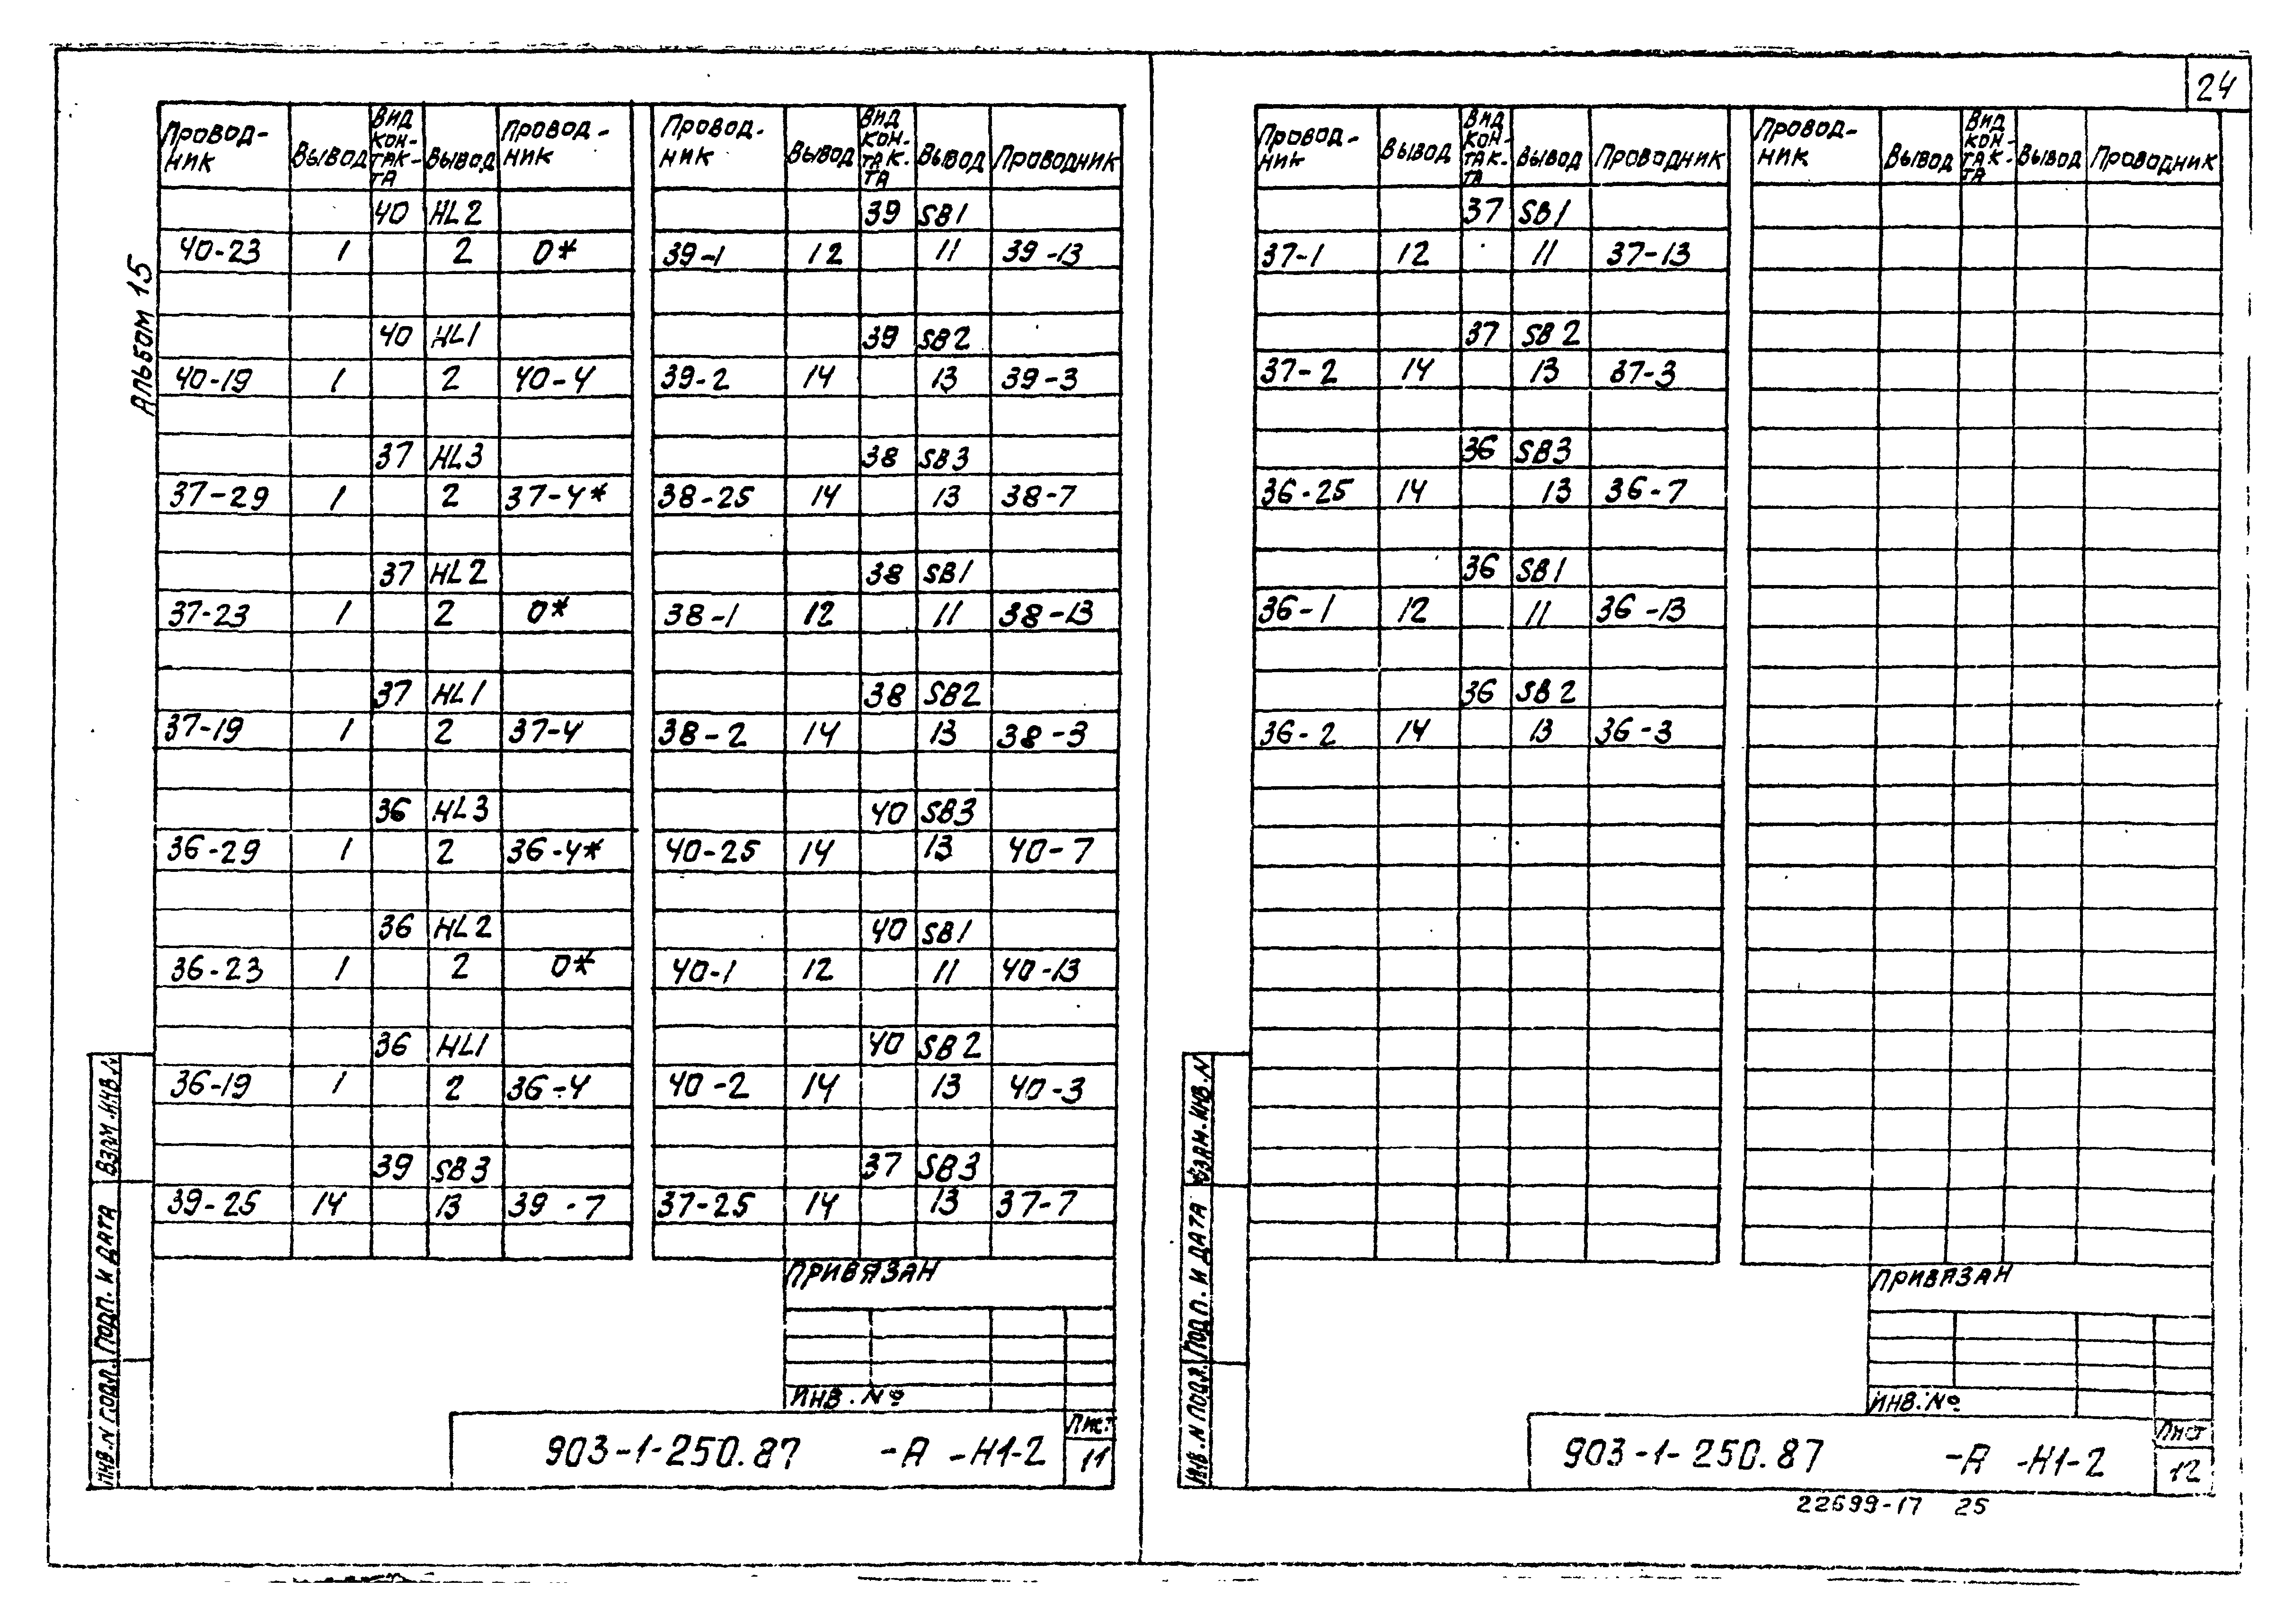 24
Альбом 15
Провод-ник Вывод Вид кон-так-та Вывод Провод-ник
40 HL2
40-23 1 2 0*
40 HL1
40-19 1 2 40-4
37 HL3
37-29 1 2 37-4*
37 HL2
37-23 1 2 0*
37 HL1
37-19 1 2 37-4
36 HL3
36-29 1 2 36-4*
36 HL2
36-23 1 2 0*
36 HL1
36-19 1 2 36-4
39 SB3
39-25 14 13 39-7
Провод-ник Вывод Вид кон-так-та Вывод Проводник
39 SB1
39-1 12 11 39-13
39 SB2
39-2 14 13 39-3
38 SB3
38-25 14 13 38-7
38 SB1
38-1 12 11 38-13
38 SB2
38-2 14 13 38-3
40 SB3
40-25 14 13 40-7
40 SB1
40-1 12 11 40-13
40 SB2
40-2 14 13 40-3
37 SB3
37-25 14 13 37-7
Привязан
Инв. №
Инв. N подл. Подп. и дата Взам. инв. N
903-1-250.87 -А -Н1-2
Лист
11
Провод-ник Вывод Вид кон-так-та Вывод Проводник
37 SB1
37-1 12 11 37-13
37 SB2
37-2 14 13 37-3
36 SB3
36-25 14 13 36-7
36 SB1
36-1 12 11 36-13
36 SB2
36-2 14 13 36-3
Провод-ник Вывод Вид кон-так-та Вывод Проводник
Привязан
Инв. №
Инв. N подл. Подп. и дата Взам. инв. N
903-1-250.87 -А -Н1-2
Лист
12
22699-17 25